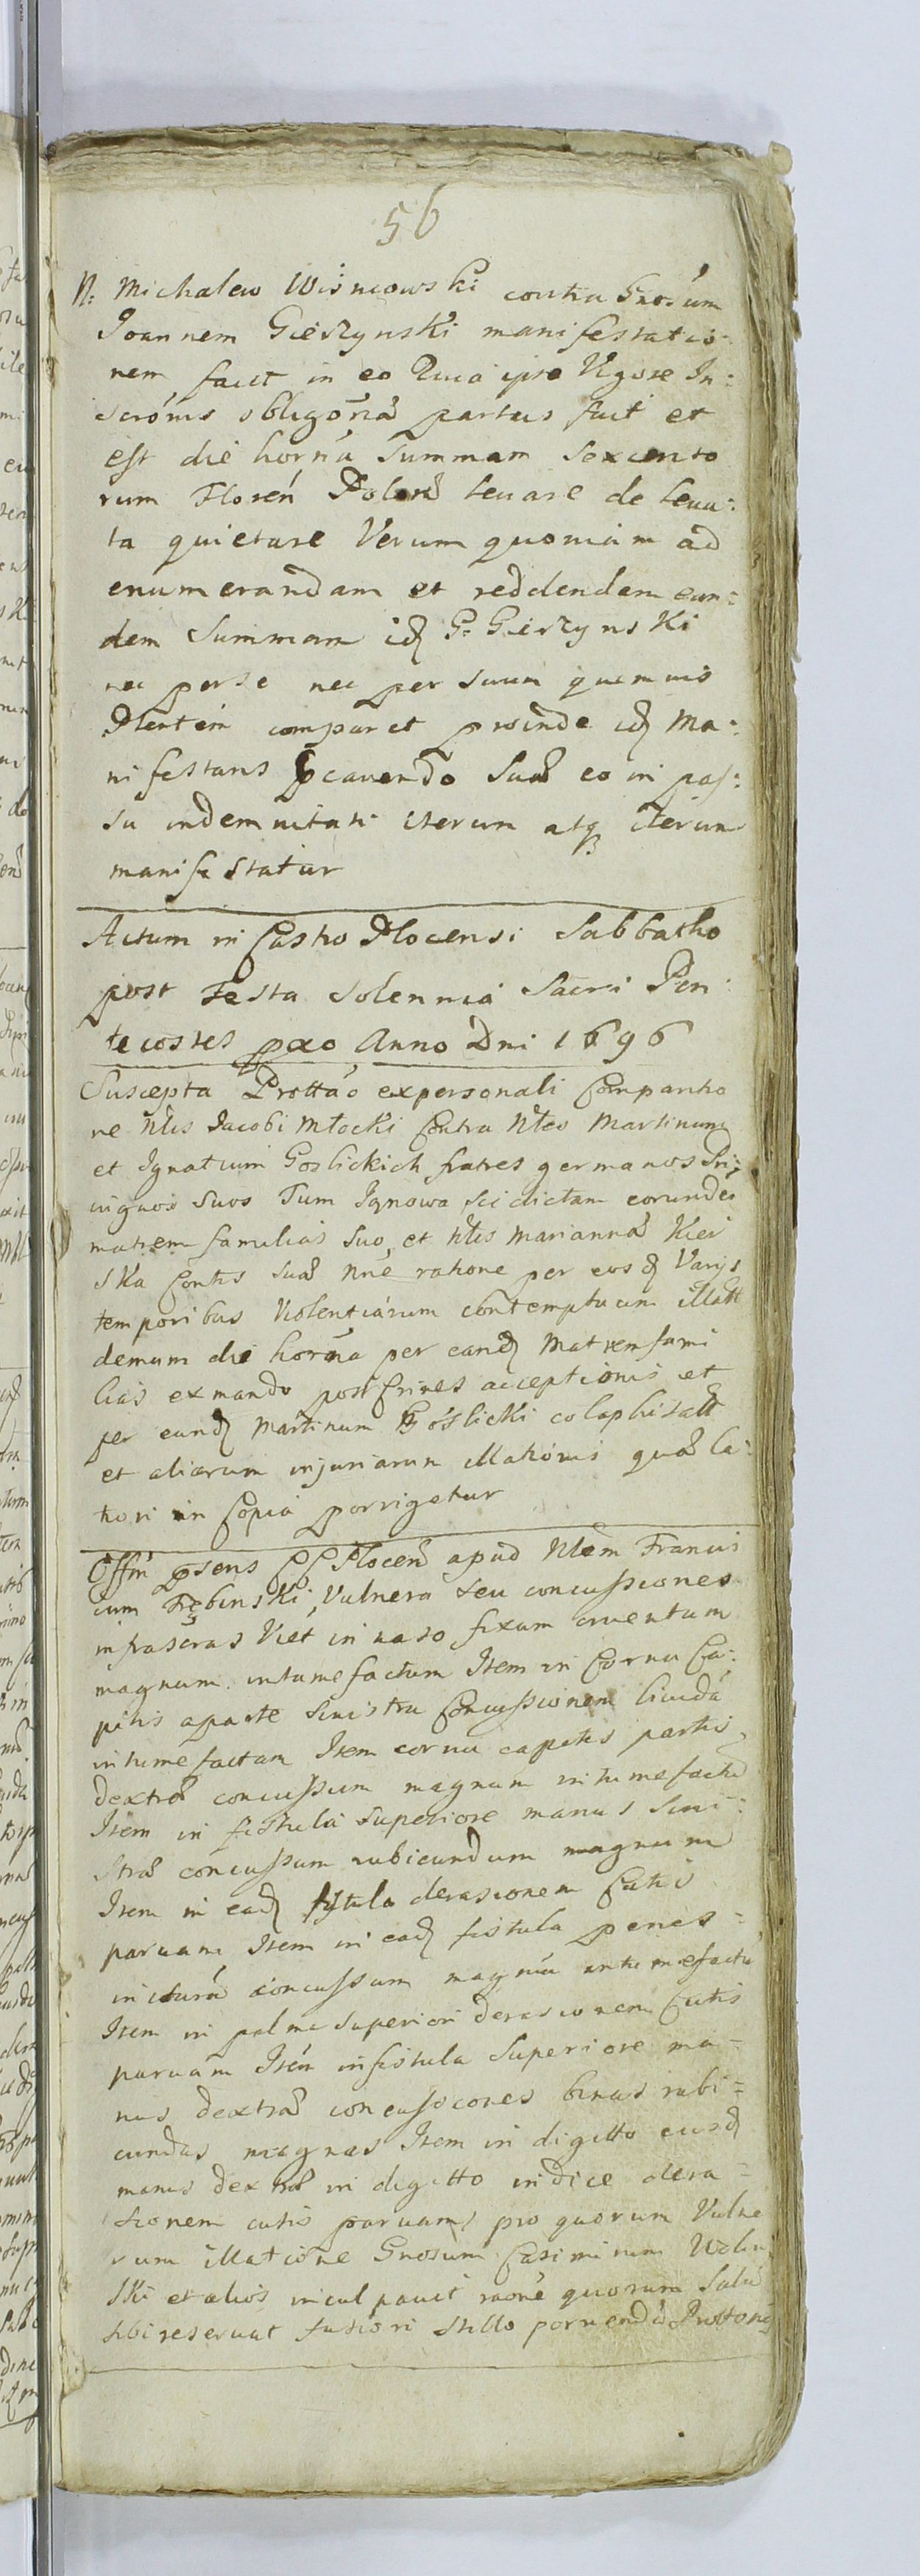 56
N: Michaleus Wisniowski contra Gnosum
Joannem Gierzynski manifestatio-
nem facit in eo Quia ipse Vigore In-
scronis obligoria partus fuit et
est die horna Summam Sexcento
rum Floren Polon levare de leva-
ta quietare Verum quoniam ad
enumerandam et reddendam ean-
dem Summam id G. Gierzynski
nec per se nec per suum quemvis
Plentem comparet proinde id Ma-
nifestans cavendo Sua eo in pas-
su indemnitati iterum atq iterum
manifestatur
Actum in Castro Plocensi Sabbatho
post Festa Solennia Sacri Pen-
tecostes pxo Anno Dni 1696
Suscepta Prottao ex personali Comparitio
ne Nlis Jacobi Młocki Contra Nles Martinum
et Ignatium Goslickich fratres germanos
Suos Tum dictam eorunde
matrem familias Suo et Nlis Marianna
ska Contis Sua nne ratione per eosd Varijs
temporibus Violentiarum contemptuum illatt
demum die horna per eand Matremfami
lias post Crines acceptionis et
per eund Martinum Goslicki colaphisatt
et aliarum injuriarum illationis qua la-
tiori in Copia porrigetur
Offm psens CC Plocen apud Nlem Francis
cum Trębinski Vulnera seu concussiones
infrascras Viet in naso fixum cruentum
magnum intumefactum Item in Cornu Ca-
pitis a parte Sinistra Concussionem livida
intumefactam Item cornu capitis partis
dextra concussum magnum intumefactu
Item in fistula Superiore manus Sini-
stra concussum rubicundum magnum
Item in ead fistula derasionem Cutis
parvam Item in ead fistula penes
concussum magnu intumefactu
Item in palma Superiori derasionem Cutis
parvam Item in fistula Superiore ma-
nus dextra concussiones binas rubi-
cundas magnas Item in digitto eiusd
manus dextra in digitto indice dera-
sionem cutis parvam pro quorum Vulne
rum illatione Gnosum Casimirum
ski et alios inculpavit rone quorum Salva
sibi reservat fusiori Stillo